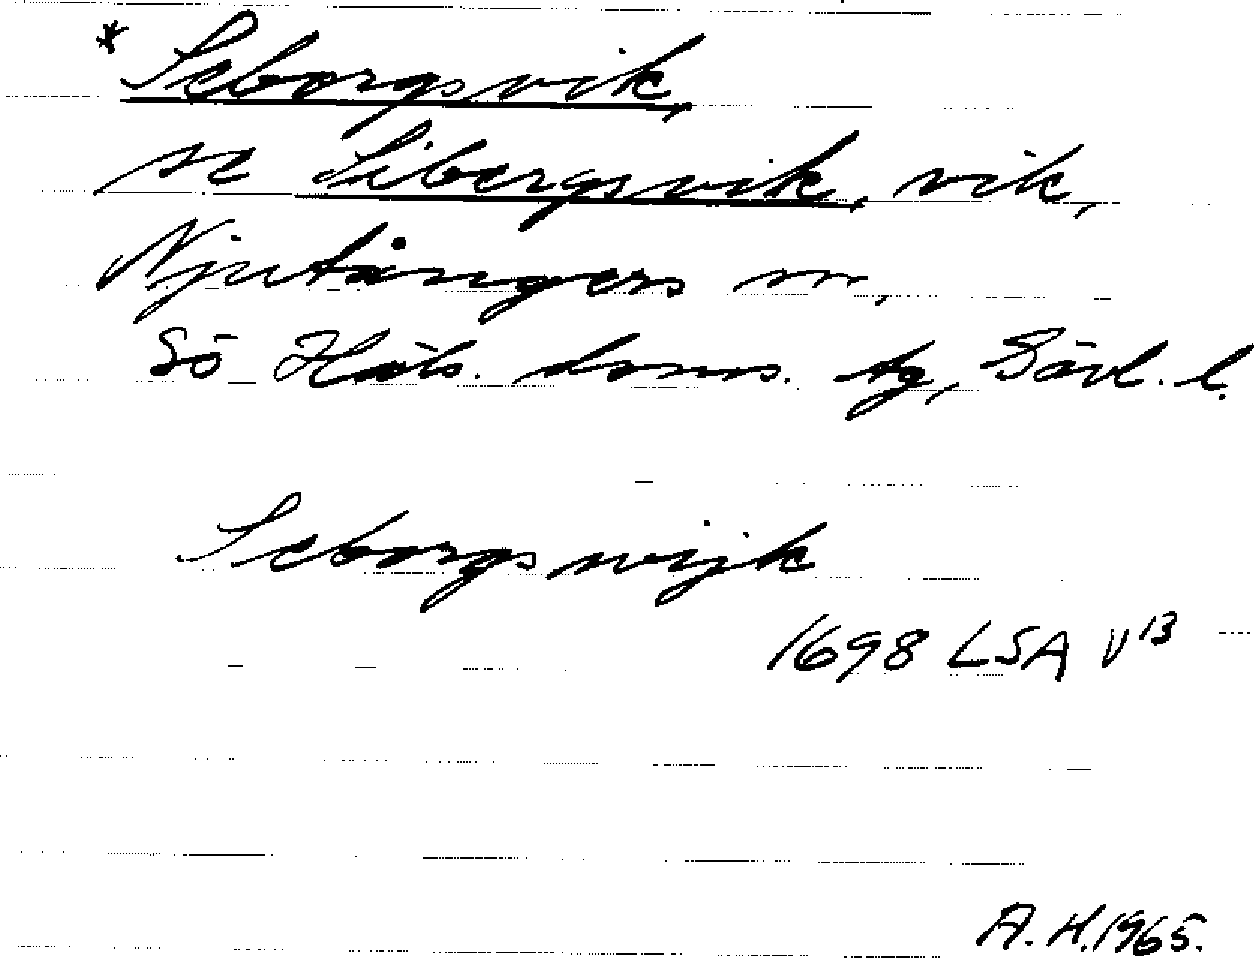 * Seborgsvik,
se Sibergsvik, vik,
Njutångers sn,
Sö Häls. doms. tg, Gävl. l.
Seborgswijk
1698 LSA V 13
A. H. 1965.